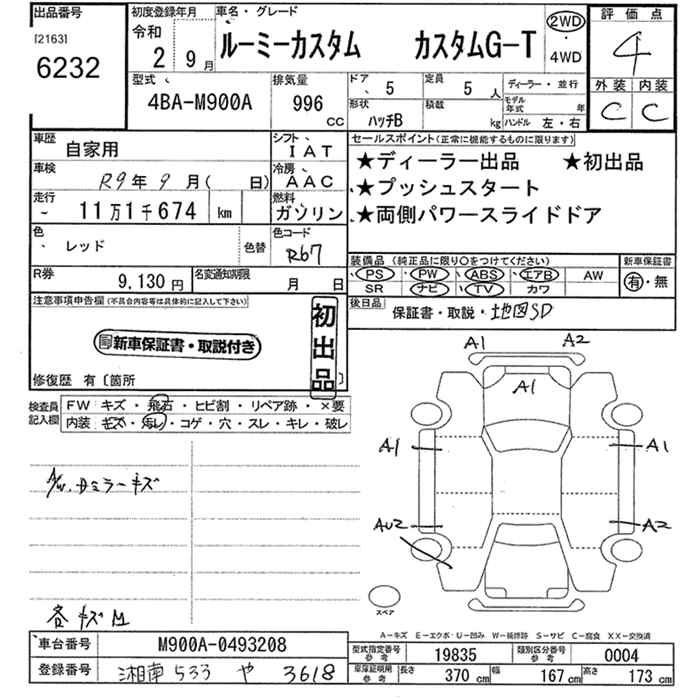 出品番号
[2163]
6232
初度登録年月
令和
2年 9月
車名・グレード
ルーミーカスタム カスタムG-T
2WD
・
4WD
評価点
4
外装 内装
C C
型式
4BA-M900A
排気量
996
CC
ドア
5
形状
ハッチB
定員
5人
積載
kg
ディーラー・並行
モデル年式 年
ハンドル 左・右
車歴
自家用
シフト
IAT
車検
R9年9月( 日)
冷房
AAC
走行
11万1千674 km
燃料
ガソリン
色
レッド
色替
色コード
R67
R券
9,130円
名変通知期限
月 日
セールスポイント(正常に機能するものに限ります)
★ディーラー出品 ★初出品
★プッシュスタート
★両側パワースライドドア
装備品 (純正品に限り○をつけてください)
PS PW ABS エアB AW
SR ナビ TV カワ
新車保証書
有・無
後日品
保証書・取説・地図SD
注意事項申告欄(不具合内容等は具体的に記入して下さい)
新車保証書・取説付き
初出品
修復歴 有〔箇所 〕
検査員記入欄
FW キズ・飛石・ヒビ割・リペア跡・×要
内装 キズ・汚レ・コゲ・穴・スレ・キレ・破レ
A/W.Dミラーキズ
各キズM
A1 A2
A1
A1 A1
AU2 A2
スペア
A-キズ E-エクボ・U-凹み W-補修跡 S-サビ C-腐食 XX-交換済
車台番号
M900A-0493208
登録番号
湘南 533 や 3618
型式指定番号
参考
19835
類別区分番号
参考
0004
車庫証明用
参考
長さ
370 cm
幅
167 cm
高さ
173 cm